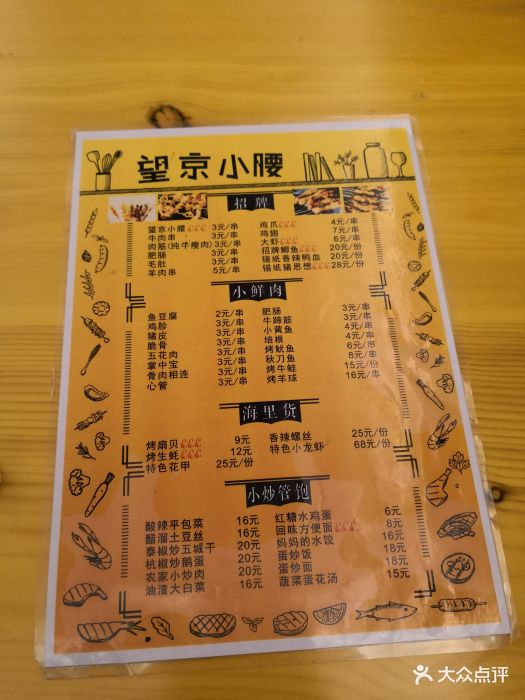 望京小腰
招牌
望京小腰 3元/串
牛肉串 3元/串
肉筋(纯牛瘦肉) 3元/串
肥肠 3元/串
毛肚 3元/串
羊肉串 5元/串
鸡爪 4元/串
鸡翅 7元/串
大虾 6元/串
招牌鲫鱼 20元/份
锡纸香辣鸭血 20元/份
锡纸猪思想 28元/份
小鲜肉
鱼豆腐 2元/串
鸡胗 3元/串
猪皮 3元/串
脆骨 3元/串
五花肉 3元/串
掌中宝 3元/串
骨肉相连 3元/串
心管 3元/串
肥肠 3元/串
牛蹄筋 3元/串
小黄鱼 4元/串
培根 4元/串
烤鱿鱼 6元/串
秋刀鱼 8元/串
烤牛蛙 15元/串
烤羊球 16元/串
海里货
烤扇贝 9元
烤生蚝 12元
特色花甲 25元/份
香辣螺丝 25元/份
特色小龙虾 68元/份
小炒管饱
酸辣平包菜 16元
醋溜土豆丝 16元
泰椒炒五城干 20元
杭椒炒鹅蛋 20元
农家小炒肉 20元
油渣大白菜 16元
红糖水鸡蛋 6元
回味方便面 8元
妈妈的水饺 16元
蛋炒饭 18元
蛋炒面 18元
蔬菜蛋花汤 15元
大众点评